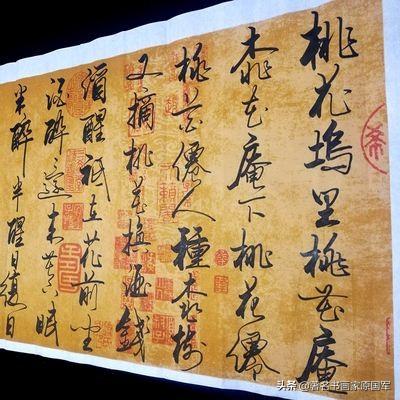 桃花塢里桃花庵
桃花庵下桃花僊
桃花僊人種桃樹
又摘桃花換酒錢
酒醒祇在花前坐
酒醉還来花下眠
半醉半醒日復日
头条 @著名书画家原国军